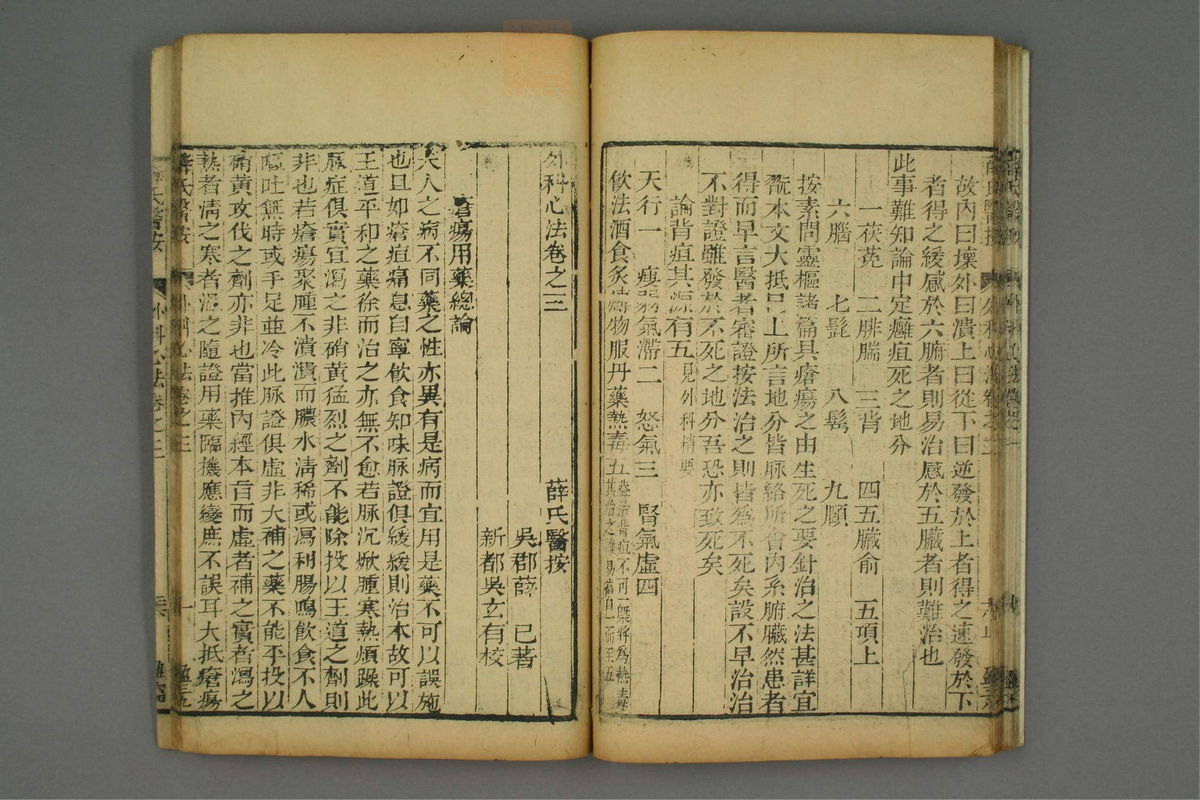 故內曰壞外曰潰上曰從下曰逆發於上者得之速發於下
者得之緩感於六腑者則易治感於五臟者則難治也
此事難知論申定癰疽死之地分
一茯菀 二腓腨 三背 四五臟俞 五項上
六腦 七髭 八鬓 九頤
按素問靈樞諸篇具瘡瘍之由生死之要針治之法甚詳宜
翫本文大抵已上所言地分皆脉絡所會內系腑臟然患者
得而早言醫者審證按法治之則皆為不死矣設不早治治
不對證雖發於不死之地分吾恐亦致死矣
論背疽其源有五 見外科精要
天行一 瘦弱氣滯二 怒氣三 腎氣虛四
飲法酒食炙煿物服丹藥熱毒五 蓋治背疽不可一槩將為熱毒
其治之難易當自一而至五
外科心法卷之三 薛氏醫按
吳郡薛 已著
新都吳玄有校
瘡瘍用藥總論
夫人之病不同藥之性亦異有是病而宜用是藥不可以誤施
也且如瘡疽痛息自寧飲食知味脉證俱緩緩則治本故可以
王道平和之藥徐而治之亦無不愈若脉沉嫰腫寒熱煩躁此
脉症俱實宜瀉之非硝黃猛烈之劑不能除投以王道之劑則
非也若瘡瘍聚腫不潰潰而膿水清稀或瀉利腸鳴飲食不入
嘔吐無時或手足並冷此脉證俱虛非大補之藥不能平投以
硝黃攻伐之劑亦非也當推內經本旨而虛者補之實者瀉之
熱者清之寒者溫之隨證用藥臨機應變庶不誤耳大抵瘡瘍
薛氏醫按 外科心法卷之三 一